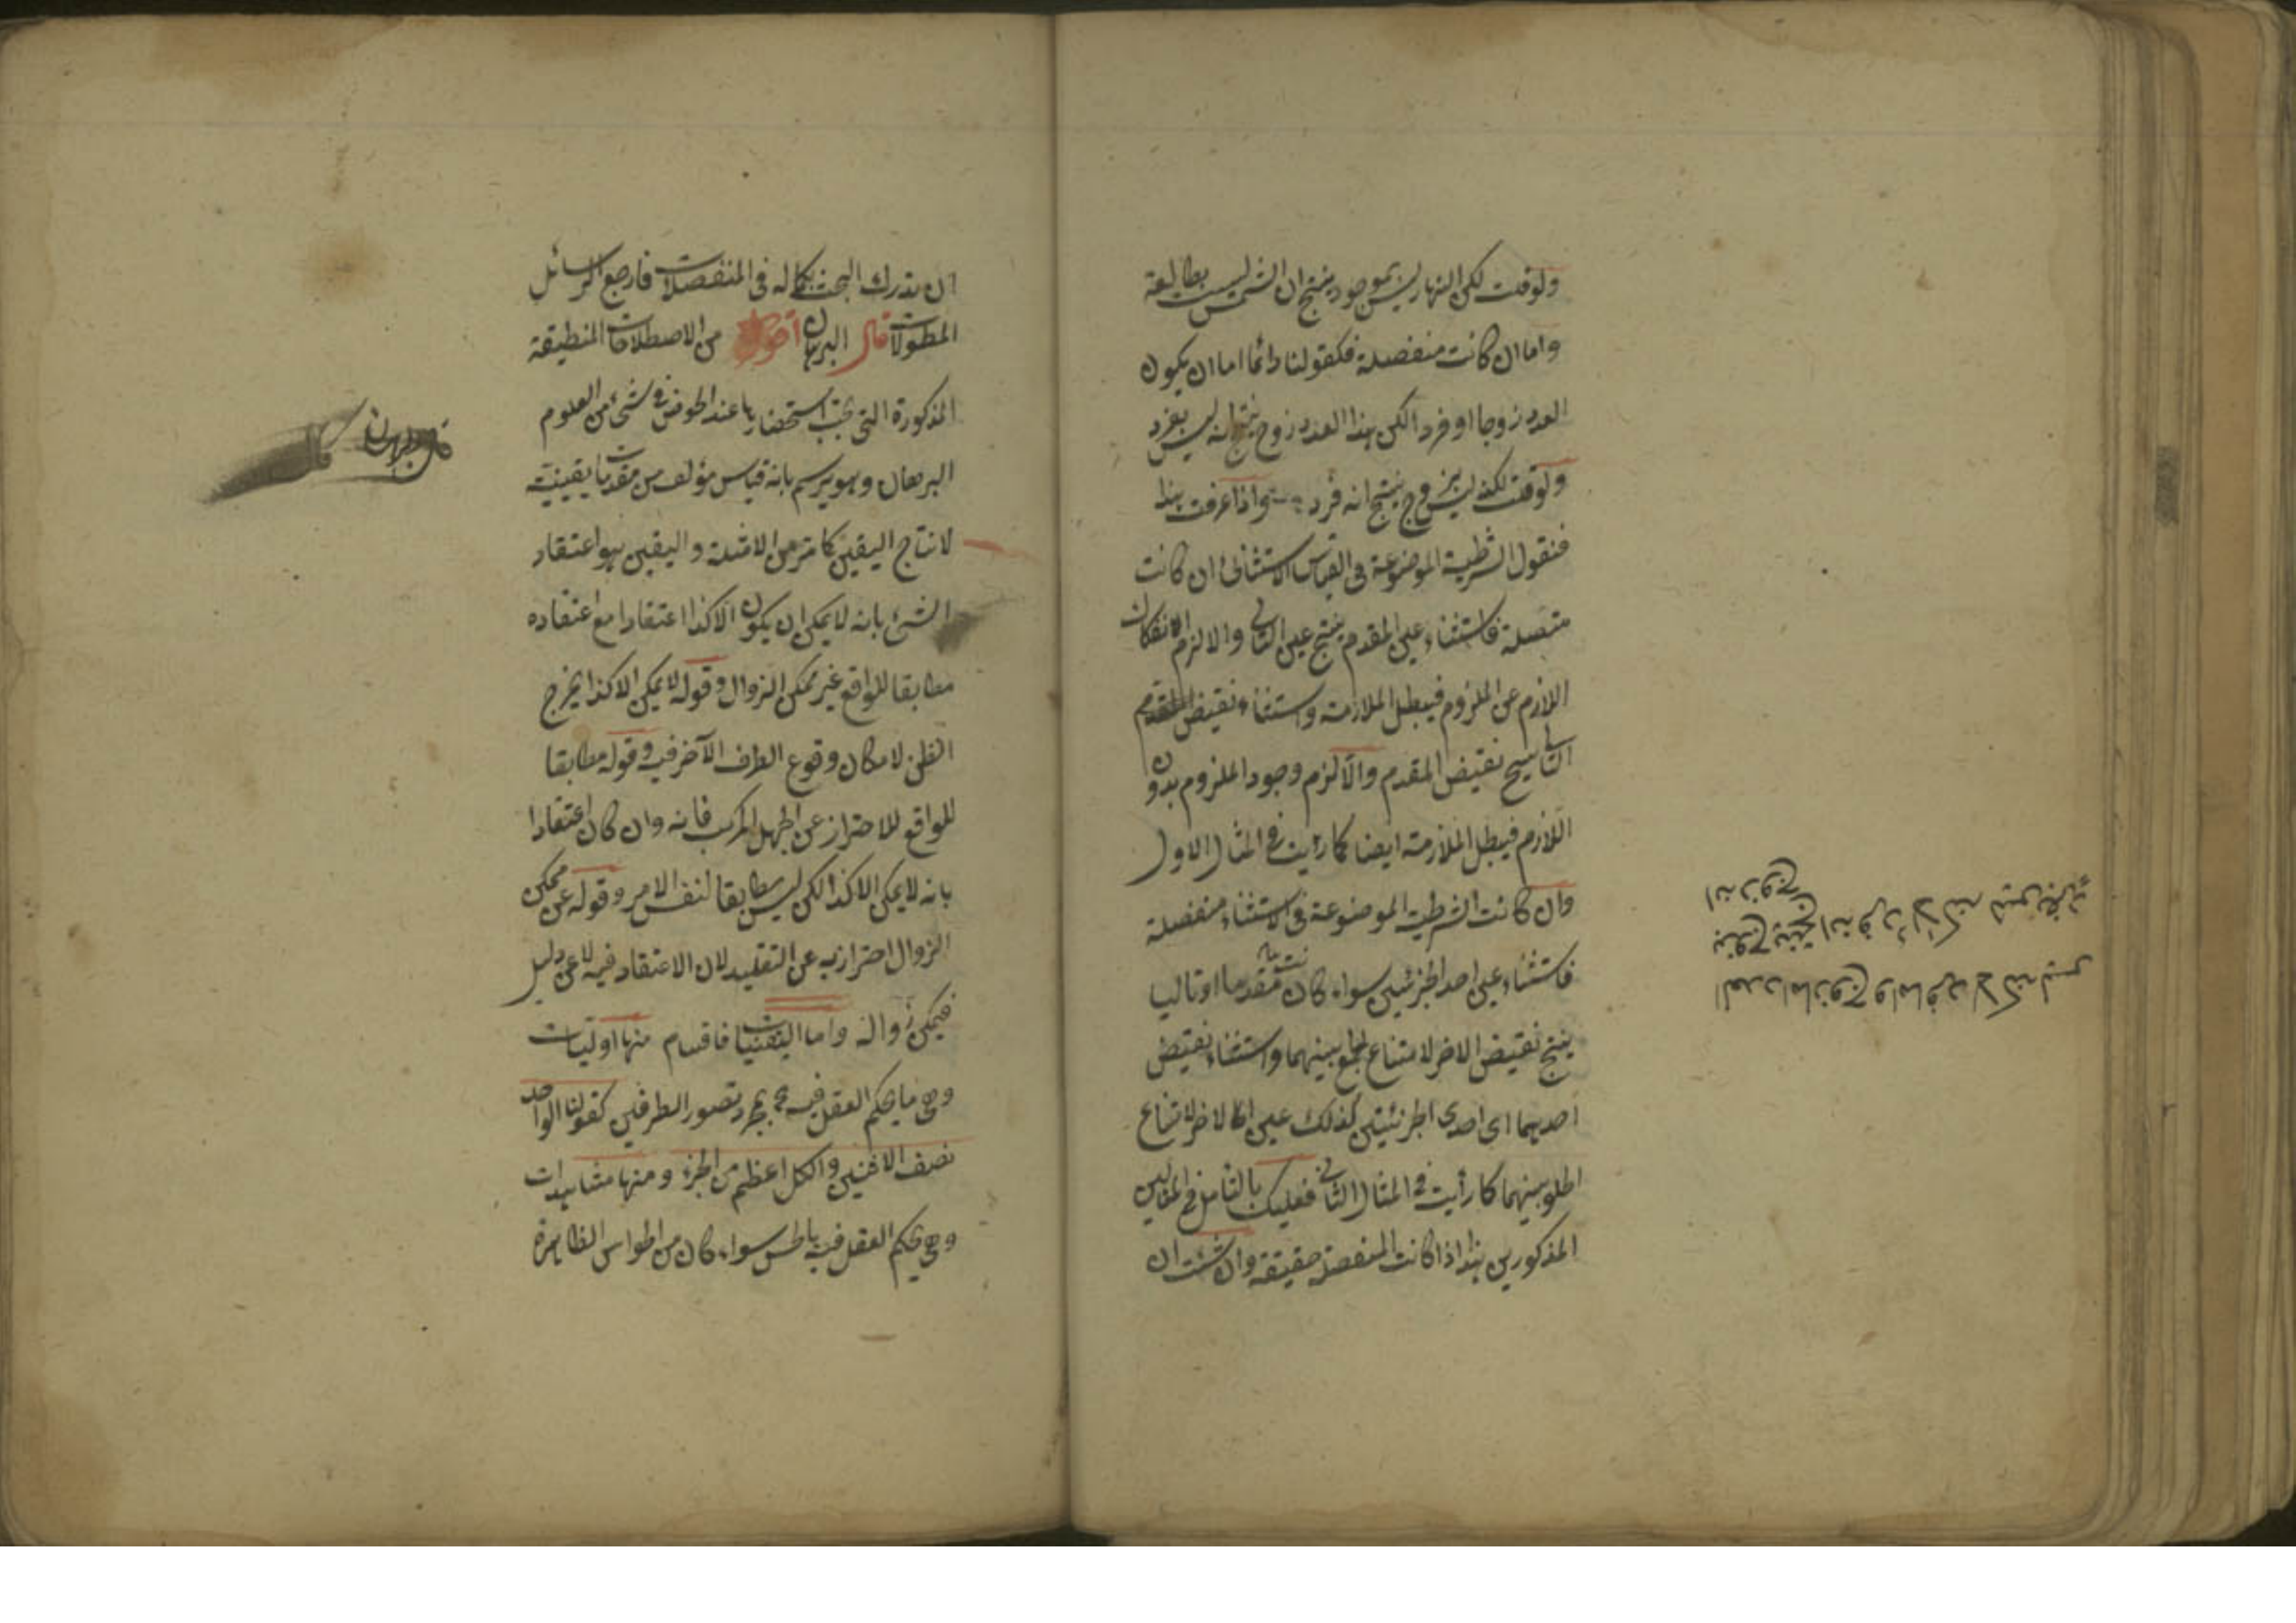 ولو قلت لكن النهار ليس بموجود ينتج ان الشمس ليست بطالعة
واما ان كانت منفصلة فكقولنا دائما اما ان يكون
العدد زوجا او فردا لكن هذا العدد زوج ينتج انه ليس بفرد
ولو قلت لكنه ليس بزوج ينتج انه فرد واذا عرفت هذا
فنقول الشرطية الموضوعة في القياس الاستثنائي ان كانت
متصلة فاستثناء عين المقدم ينتج عين التالي والا لزم انفكاك
اللازم عن الملزوم فيبطل الملازمة واستثناء نقيض
التالي ينتج نقيض المقدم والا لزم وجود الملزوم بدون
اللازم فيبطل الملازمة ايضا كما رأيت في المثال الاول
وان كانت الشرطية الموضوعة في الاستثناء منفصلة
فاستثناء عين احد الجزئين سواء كان مقدما او تاليا
ينتج نقيض الاخر لامتناع الجمع بينهما واستثناء نقيض
احديهما اى احدى الجزئيتين كذلك عين الاخر لامتناع
الخلو بينهما كما رأيت في المثال الثاني فعليك بالتأمل في المثالين
المذكورين هذا اذا كانت المنفصلة حقيقة وان شئت ان
العدد اما زوج واما فرد لاكنه ليس
بزوج ينتج انه فرد لاكنه ليس بفرد
ينتج انه زوج
ان تدرك البحث بكماله في المنفصلات فارجع الرسائل
المطولات قال البرهان اقول من الاصطلاحات المنطيقة
المذكورة التى يجب استحضارها عند الخوض في شئ من العلوم
البرهان وهو يرسم بانه قياس مؤلف من مقدمات يقينية
لانتاج اليقين كما مر من الامثلة واليقين هو اعتقاد
الشئ بانه لا يمكن ان يكون الا كذا اعتقادا مع اعتقاده
مطابقا للواقع غير ممكن الزوال وقوله لا يمكن الا كذا يخرج
الظن لامكان وقوع الطرف الآخر فيه وقوله مطابقا
للواقع للاحتراز عن الجهل المركب فانه وان كان اعتقادا
بانه لا يمكن الا كذا لكن ليس مطابقا لنفس الامر وقوله غير ممكن
الزوال احترازبه عن التقليد لان الاعتقاد فيه لا عن دليل
فيمكن زواله واما اليقنيات فاقسام منها اوليات
وهي ما يحكم العقل فيه بمجرد تصور الطرفين كقولنا الواحد
نصف الاثنين والكل اعظم من الجزء ومنها مشاهدات
وهي يحكم العقل فيه بالحس سواء كان من الحواس الظاهرة